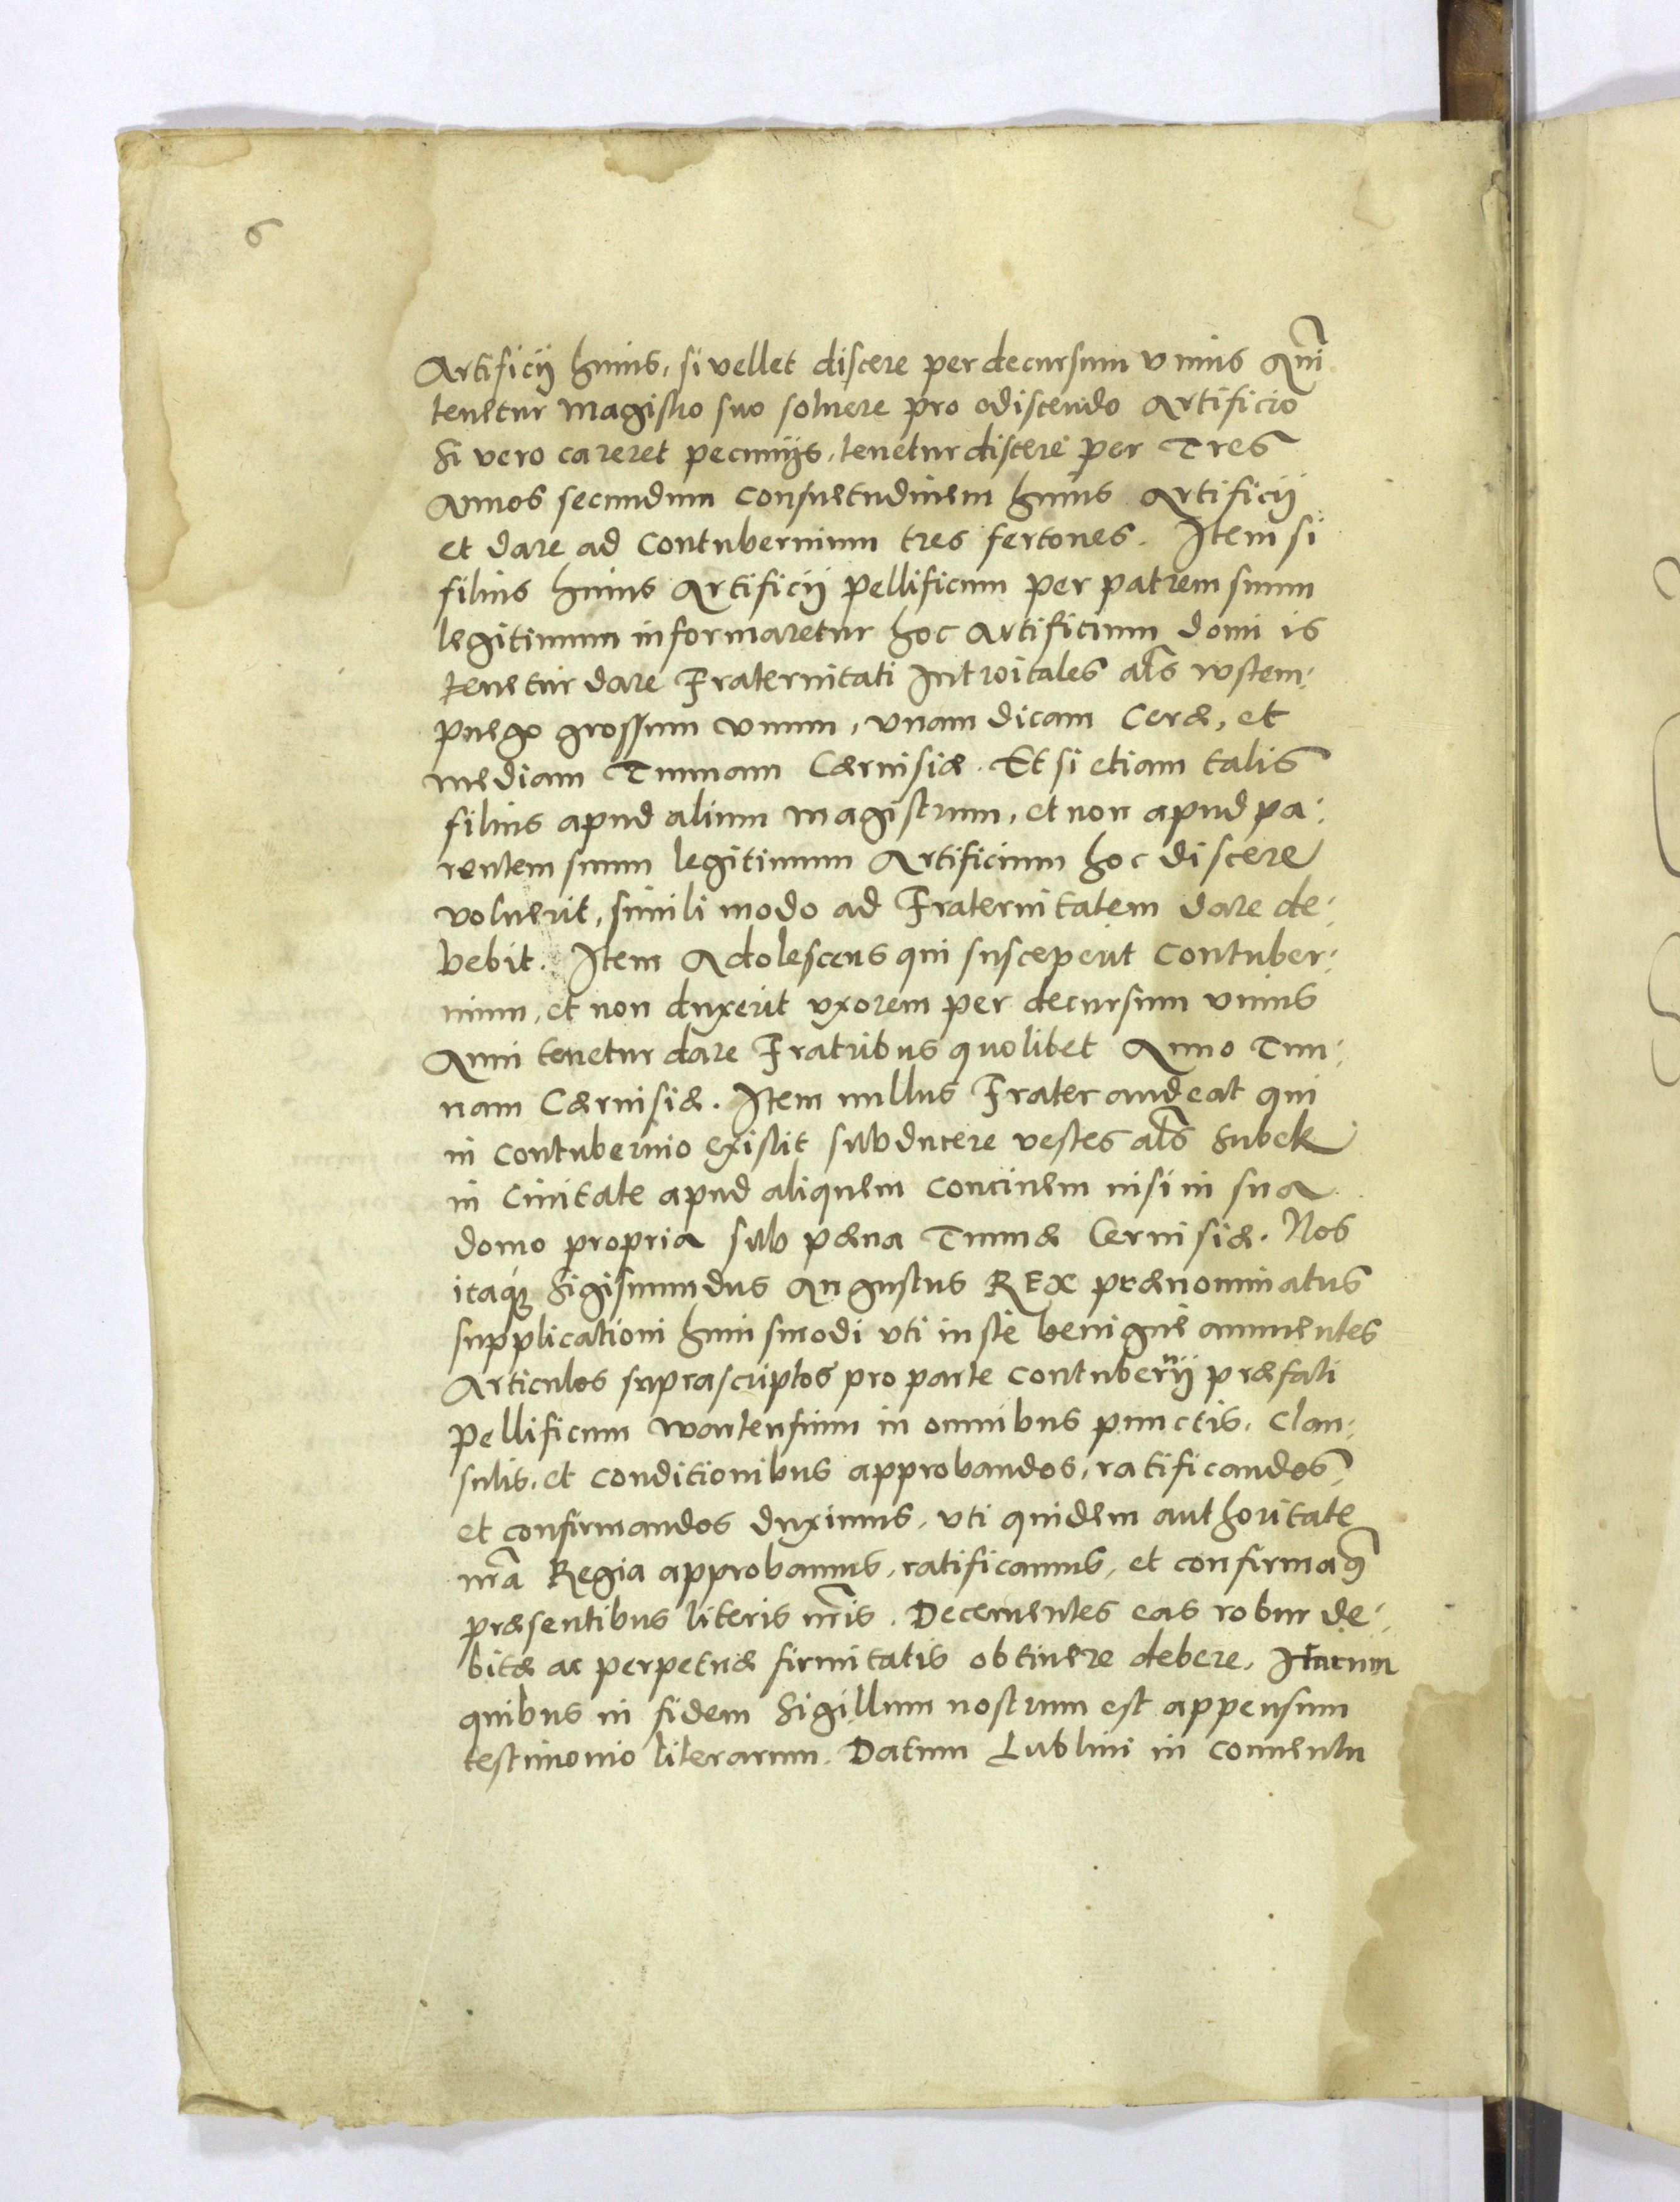 6
Artificij huius, si vellet discere per decursum vnius Anī
tenetur magistro suo soluere pro ediscendo Artificio
Si vero careret pecunijs, tenetur discere per Tres
Annos secundum consuetudinem huius Artificij
et dare ad Contubernium tres fertones. Item si
filius huius Artificij pellificum per patrem suum
legitimum informaretur hoc Artificium domi is
tenetur dare Fraternitati Introitales al̄s wstem:
pnego grossum vnum, vnam dicam Ceræ, et
mediam Tunnam Cæruisiæ. Et si etiam talis
filius apud alium magistrum, et non apud pa:
rentem suum legitimum Artificium hoc discere
voluerit, simili modo ad Fraternitatem dare de:
bebit. Item Adolescens qui susceperit Contuber:
nium, et non duxerit vxorem per decursum vnius
Anni tenetur dare Fratribus quolibet Anno Tun:
nam Cæruisiæ. Item nullus Frater audeat qui
in Contubernio existit subducere vestes al̄s Subek
in Ciuitate apud aliquem conciuem nisi in sua
domo propria sub pæna Tunnæ Ceruisiæ. Nos
itaq; Sigismundus Augustus REX prænominatus
supplicationi huiusmodi vti iustè benignè annuentes
Articulos suprascriptos pro parte contubernij præfati
pellificum Wartensium in omnibus punctis, Clau:
sulis, et conditionibus approbandos, ratificandos,
et confirmandos duximus, vti quidem authoritate
nr̄a Regia approbamus, ratificamus, et confirmam9
præsentibus literis nr̄is. Decernentes eas robur de:
bitæ ac perpetuæ firmitatis obtinere debere, Harum
quibus in fidem Sigillum nostrum est appensum
testimonio literarum. Datum Lublini in conuentu